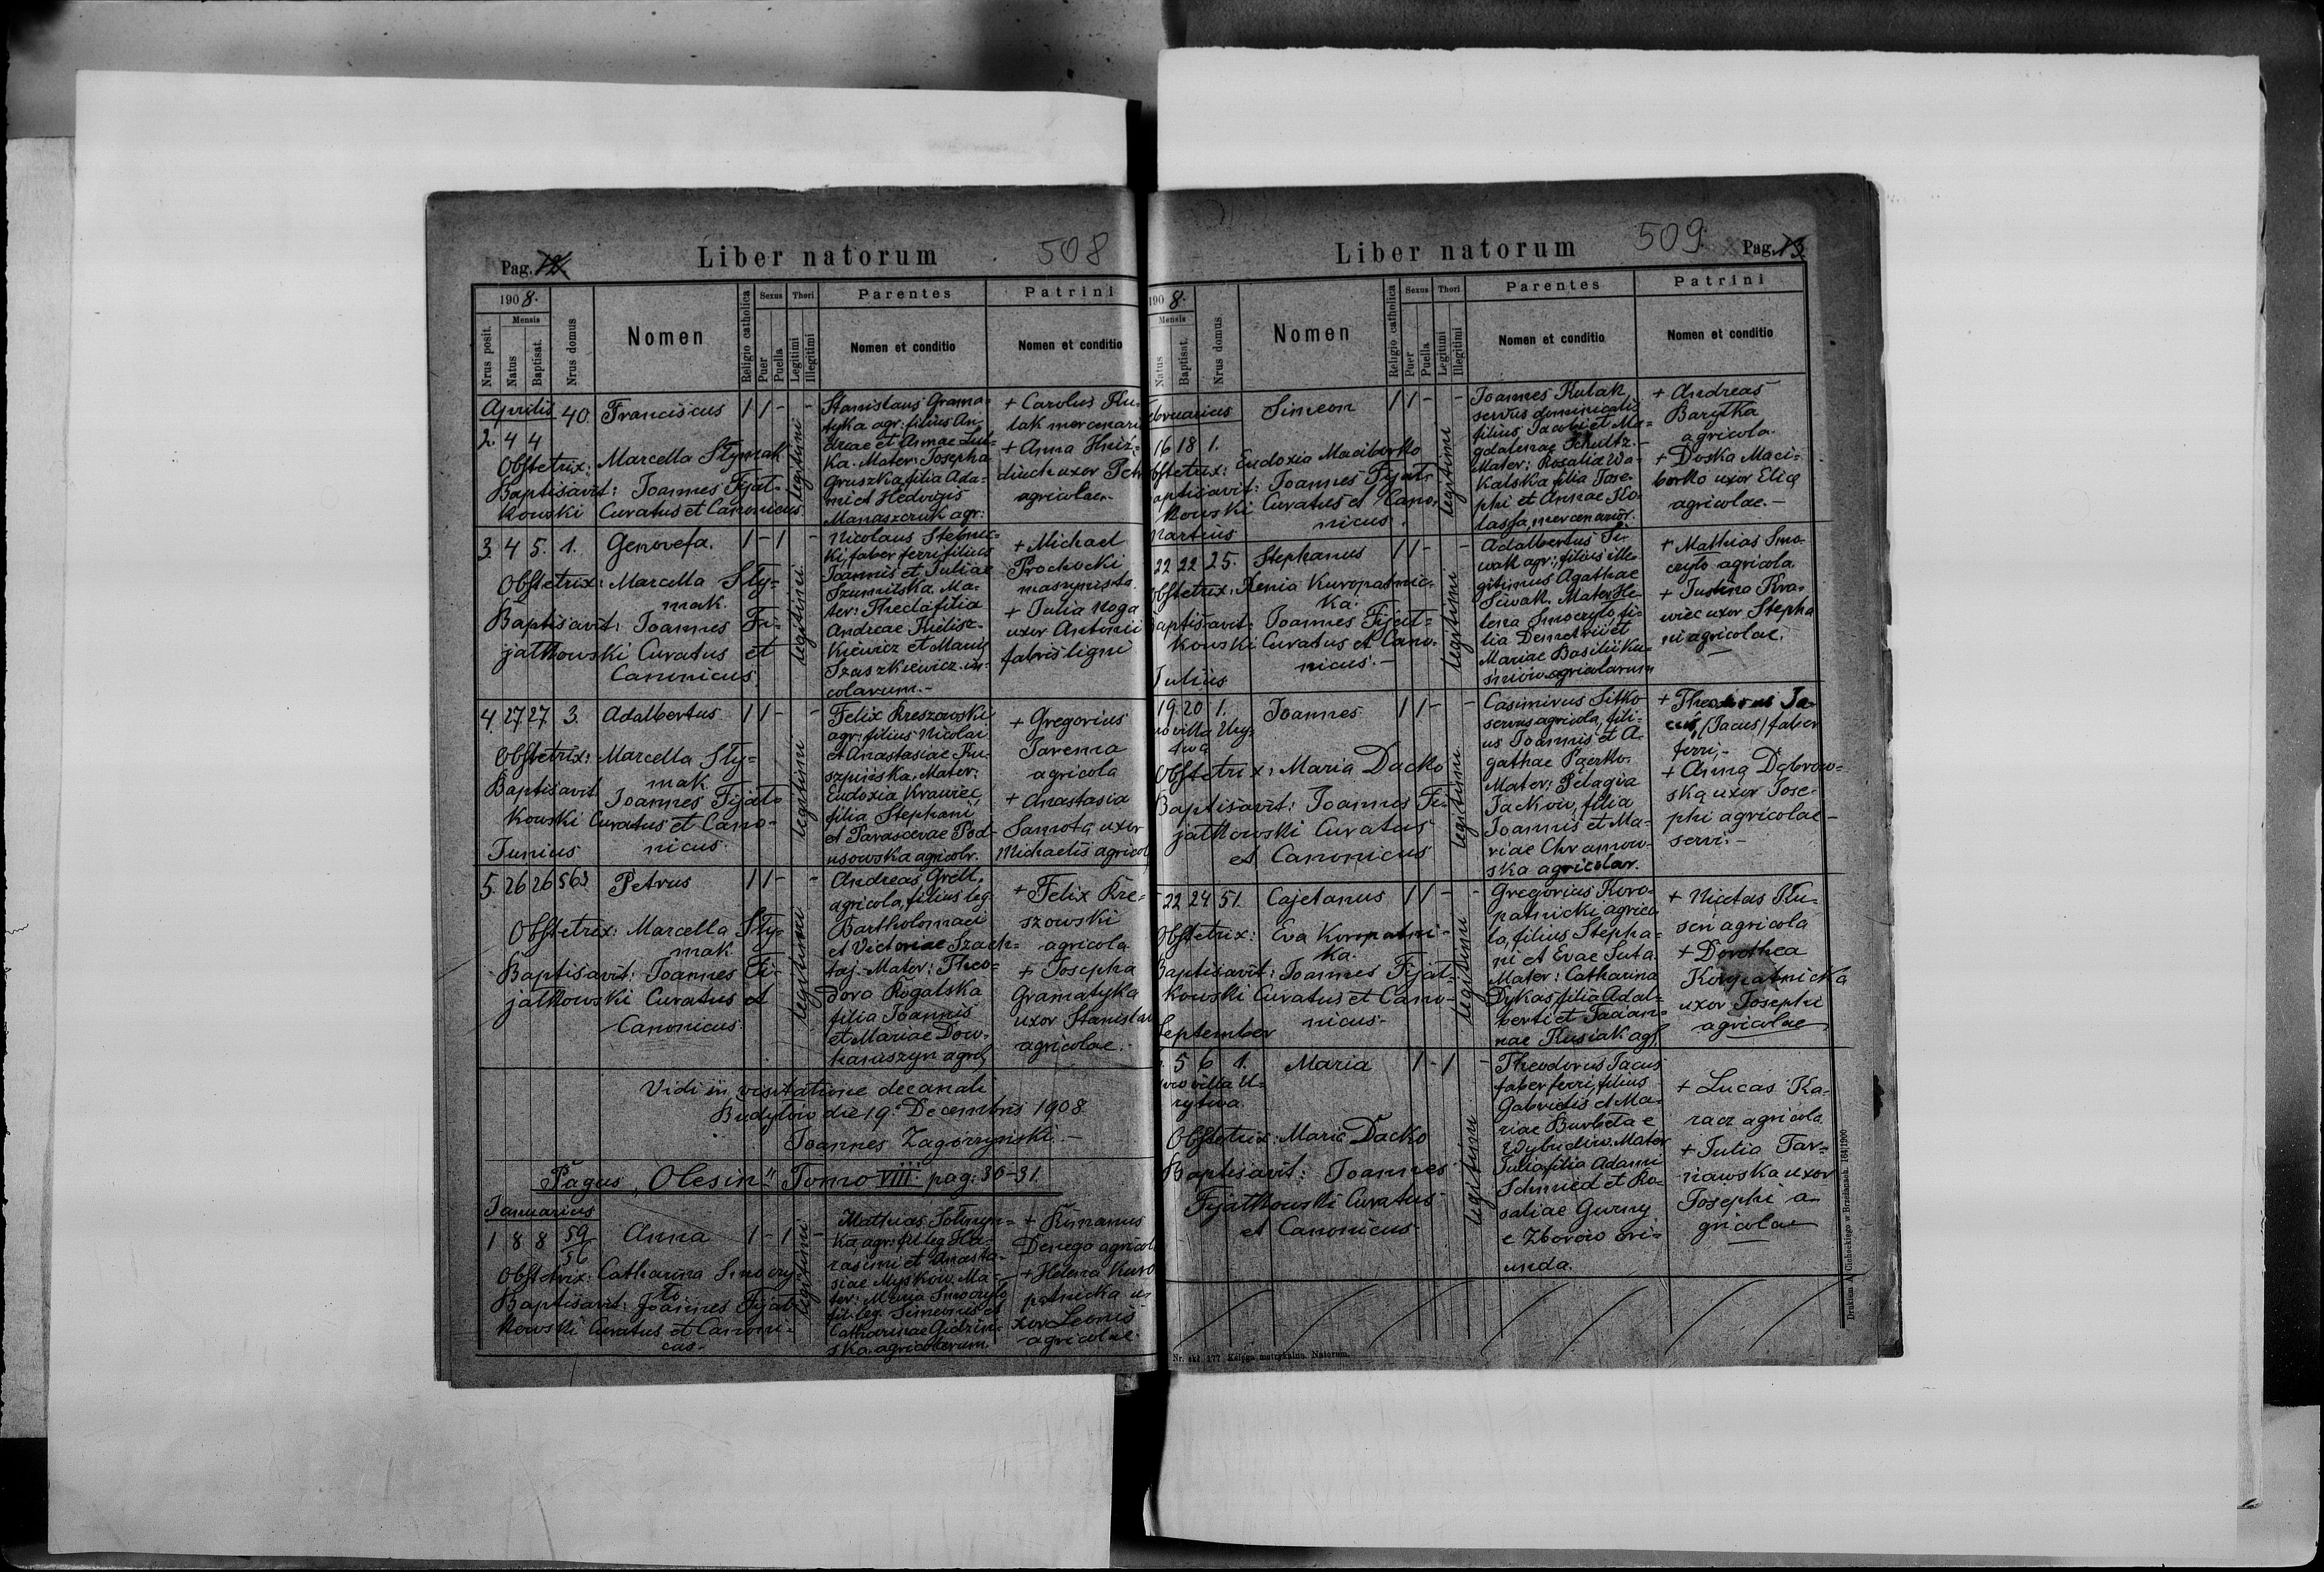 Pag. 12.
Liber natorum
508
1908.
Mensis
Nrus posit.
Natus
Baptisat.
Nrus domus
Nomen
Religio catholica
Sexus
Puer
Puella
Thori
Legitimi
Illegitimi
Parentes
Nomen et conditio
Patrini
Nomen et conditio
Aprilis
2. 4 4 40. Franciscus 1 1 - -
Obstetrix: Marcella Stymak
Baptisavit: Joannes Fijał-
kowski Curatus et Canonicus
legitimi
Stanislaus Grama-
tyka agr: filius An-
dreae et Annae
Mater: Josepha
Gruszka filia Ada-
mi et Hedvigis
Manaszczuk agr:
+ Carolus
lak mercenari
+ Anna
agricolae.
3 4 5. 1. Genovefa. 1 - 1 -
Obstetrix: Marcella Sty-
mak.
Baptisavit: Joannes Fi-
jałkowski Curatus et
Canonicus
legitimi
Nicolaus Stebnic-
ki, faber ferri filius
Joannis et Juliae
Szumilska. Ma-
ter: Thecla filia
Andreae Kielisz-
kiewicz et Mariae
Szaszkiewicz in-
colarum.-
+ Michael
Prochocki
maszynista
+ Julia Noga
uxor Antonii
fabris ligni
4. 27 27 3. Adalbertus 1 1 - -
Obstetrix: Marcella Sty-
mak
Baptisavit Joannes Fijał-
kowski Curatus et Cano-
nicus.
legitimi
Felix Kreszowski
agr: filius Nicolai
et Anastasiae Ru-
szpińska. Mater:
Eudoxia Krawiec,
filia Stephani
et Parascevae Pod-
usowska agricolr.
+ Gregorius
Jarema
agricola
+ Anastasia
Samota uxor
Michaelis agricol
Junius
5. 26 26 563 Petrus 1 1 - -
Obstetrix: Marcella Sty-
mak
Baptisavit: Joannes Fi-
jałkowski Curatus et
Canonicus
legitimi
Andreas Grell,
agricola, filius leg.
Bartholomaei
et Victoriae Szach-
taj. Mater: Theo-
dora Rogalska
filia Joannis
et Mariae Dow-
haniszyn agrol,
+ Felix Kre-
szowski
agricola
+ Josepha
Gramatyka
uxor Stanislai
agricolae.
Vidi in visitatione decanali
Budyłow die 19. Decembris 1908
Joannes Zagórzyński -
Pagus „Olesin" Tomo VIII. pag: 30-31.
Januarius
1 8 8 59/56 Anna 1 - 1 -
Obstetrix: Catharina Smoczy-
ło
Baptisavit: Joannes Fijał-
kowski Curatus et Canoni-
cus-
legitimi
Mathias
ka agr: fil leg Ha-
rasimi et Anasta-
siae Myśków. Ma-
ter: Maria Smoczyło
fil: leg. Simeonis et
Catharinae
ska agricolarum.
+ Romanus
Denega agricol
+ Helena Kuro
patnicka u
xor Leonis
agricolae.
Liber natorum
509
Pag. 13
1908.
Mensis
Natus
Baptisat.
Nrus domus
Nomen
Religio catholica
Sexus
Puer
Puella
Thori
Legitimi
Illegitimi
Parentes
Nomen et conditio
Patrini
Nomen et conditio
ebruarius
16 18 1. Simeon 1 1 - -
bstetrix: Eudoxia Maciborko
aptisavit: Joannes Fijał-
kowski Curatus et Cano-
nicus.
legitimi
Joannes Kulak
servus dominicalis
filius Jacobi et Ma-
gdalenae Schultz.-
Mater: Rosalia Wa-
kalska filia Jose-
phi et Annae Ko-
lassa, mercenarior.
+ Andreas
Baryłka
agricola.
+ Doska Maci-
borko uxor Eliae
agricolae.-
Martius
22 22 25. Stephanus 1 1 - -
Obstetrix: Xenia Kuropatnic-
ka.
Baptisavit: Joannes Fijał-
kowski Curatus et Cano-
nicus.-
legitimi
Adalbertus Si-
wak agr:, filius ille-
gitimus Agathae
Siwak. Mater He-
lena Smoczyło, fi-
lia Demetrii et
Mariae Basilii Ku-
śniów agricolarum
+ Mathias Smo-
czyło agricola
+ Justina Kra-
wiec uxor Stepha
ni agricolae.
Julius
19. 20 1. Joannes 1 1 - -
Obstetrix: Maria Dacko
Baptisavit: Joannes Fi-
jałkowski Curatus
et Canonicus
legitimi
Casimirus Sitko
servus agricola, fili-
us Joannis et A-
gathae
Mater: Pelagia
Jacków, filia
Joannis et Ma-
riae Chramow-
ska agricolar.
+ Theodorus Ja-
cuś, (Jacus) faber
ferri,-
+ Anna Dąbrow-
ska uxor Jose-
phi agricolae-
servi.-
22 24 51. Cajetanus 1 1 - -
Obstetrix: Eva Koropatni-
ka.
Baptisavit: Joannes Fijał-
kowski Curatus et Cano-
nicus-
legitimi
Gregorius Koro-
patnicki agrico-
la, filius Stepha-
ni et Evae Suta.
Mater: Catharina
Dykas filia Adal-
berti et Taciam-
nae Kusiak agl,
+ Nicetas Ku-
seń agricola
+ Dorothea
Koropatnicka
uxor Josephi
agricolae
September
5 6 1. Maria 1 - 1 -
Obstetrix: Maria Dacko
Baptisavit: Joannes
Fijałkowski Curatus
et Canonicus-
legitimi
Theodorus Jacus
faber ferri, filius
Gabrielis et Ma-
riae Burbeła e
Wybudów. Mater
Julia filia Adami
Schmied et Ro-
saliae Gurny
e Zborów ori-
unda.
+ Lucas Ka-
racz agricola
+ Julia Tar-
nawska uxor
Josephi a-
gricolae
Nr. skł. 177. Księga metrykalna. Natorum.